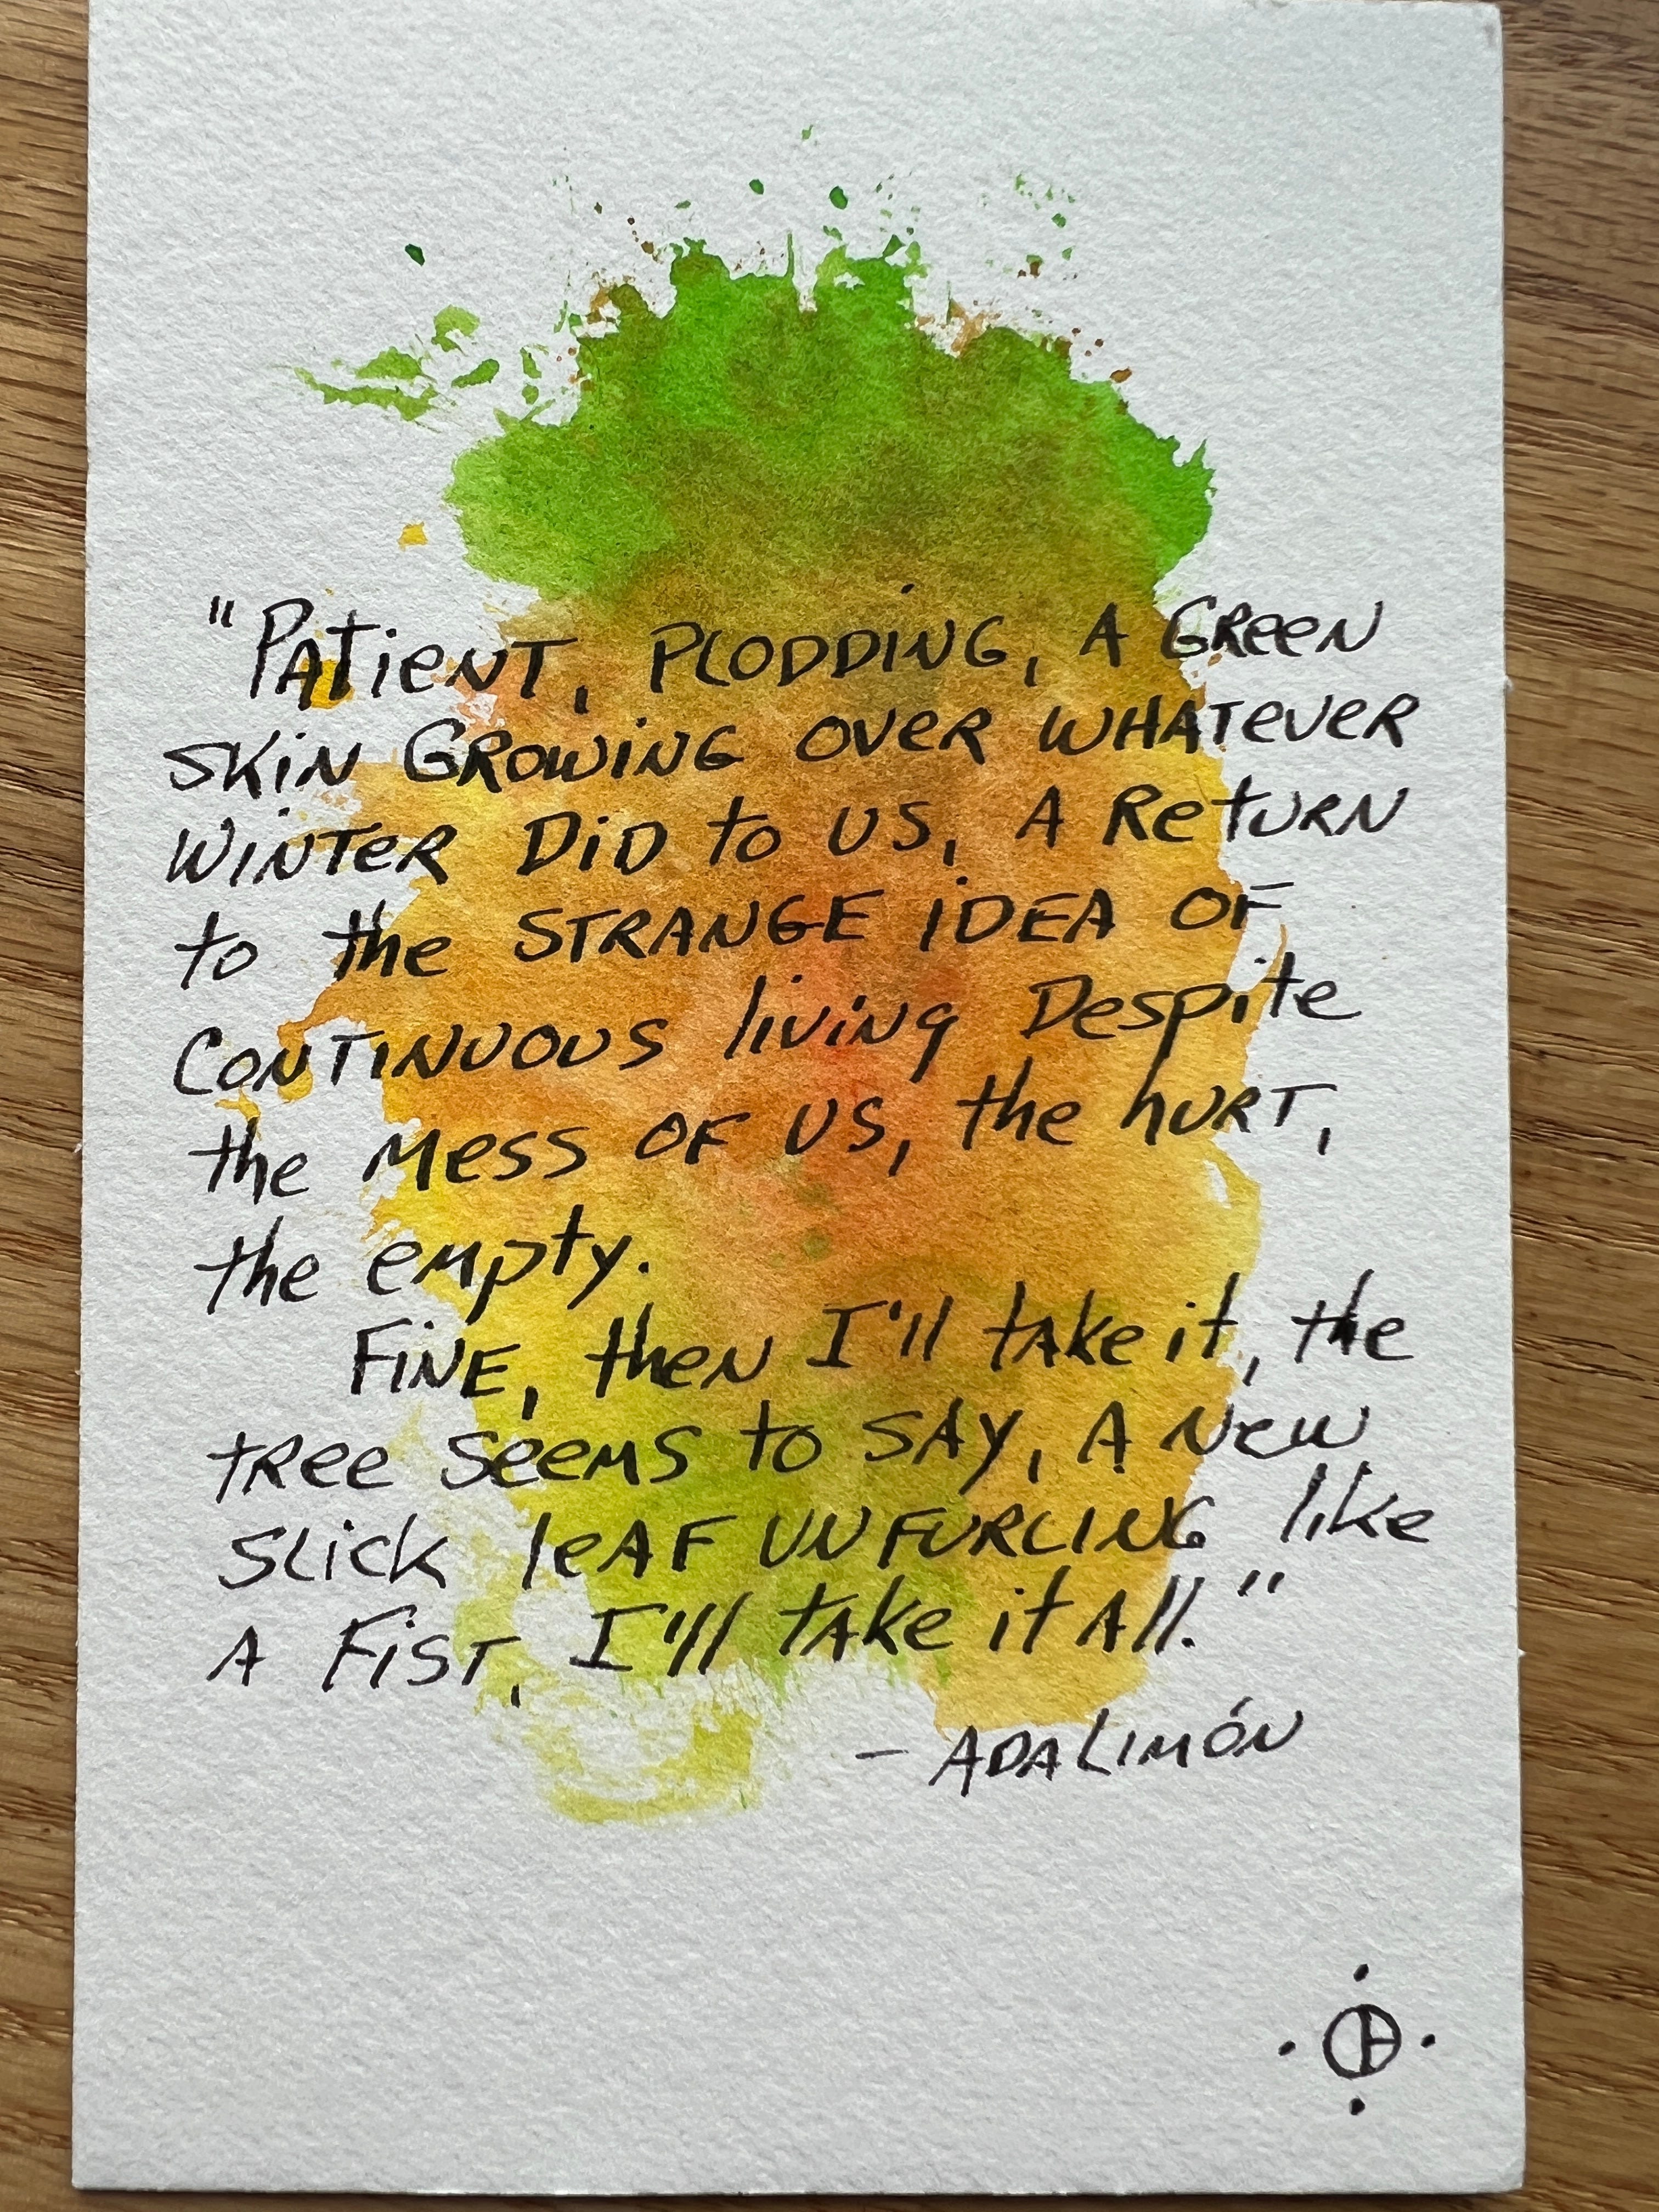 "Patient, plodding, a green
skin growing over whatever
winter did to us, a return
to the strange idea of
continuous living despite
the mess of us, the hurt,
the empty.
Fine, then I'll take it, the
tree seems to say, a new
slick leaf unfurling like
a fist, I'll take it all."
— Ada Limón